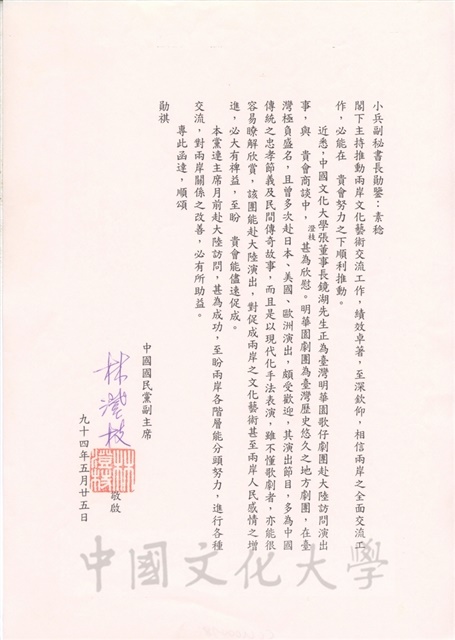 小兵副秘書長勛鑒：素稔
閣下主持推動兩岸文化藝術交流工作，績效卓著，至深欽仰，相信兩岸之全面交流工
作，必能在　貴會努力之下順利推動。
近悉，中國文化大學張董事長鏡湖先生正為臺灣明華園歌仔劇團赴大陸訪問演出
事，與　貴會商談中，澄枝甚為欣慰。明華園劇團為臺灣歷史悠久之地方劇團，在臺
灣極負盛名，且曾多次赴日本、美國、歐洲演出，頗受歡迎，其演出節目，多為中國
傳統之忠孝節義及民間傳奇故事，而且是以現代化手法表演，雖不懂歌劇者，亦能很
容易瞭解欣賞，該團能赴大陸演出，對促成兩岸之文化藝術甚至兩岸人民感情之增
進，必大有裨益，至盼　貴會能儘速促成。
本黨連主席月前赴大陸訪問，甚為成功，至盼兩岸各階層能分頭努力，進行各種
交流，對兩岸關係之改善，必有所助益。
專此函達，順頌
勛祺
中國國民黨副主席
林澄枝
林澄枝
敬啟
九十四年五月廿五日
中國文化大學